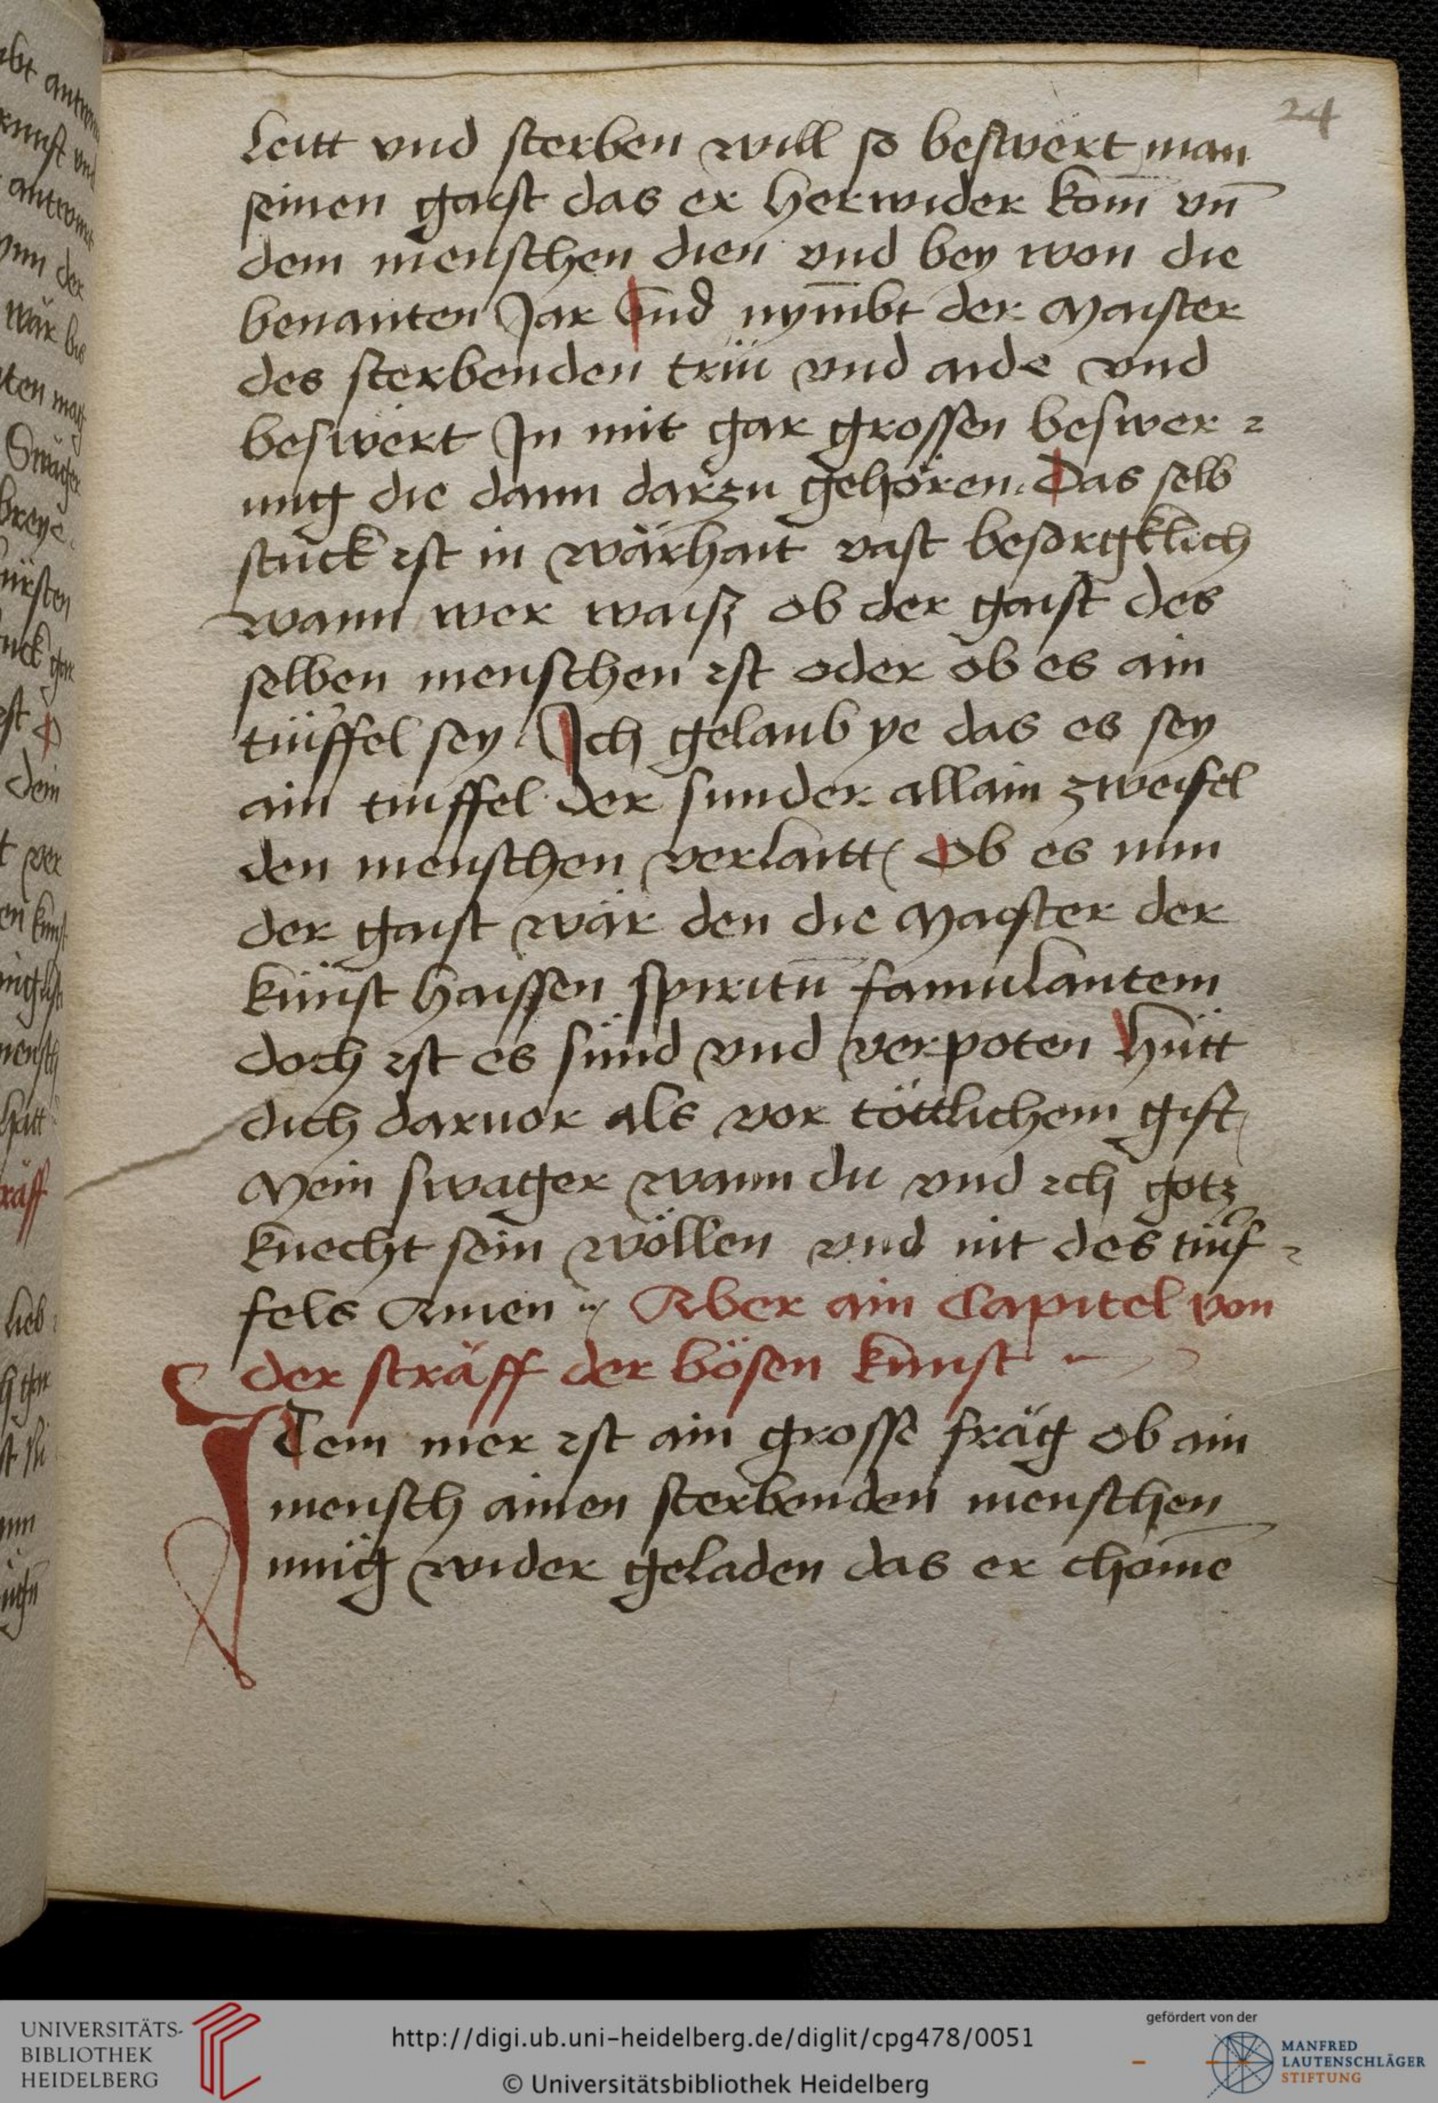 24
leitt vnd sterben will so beswërt man
seinen gaist das er herwider kom̄ vn̄
dem menschen dien vnd bey won die
benanten Jar Vnd nym̄bt der Maister
des sterbenden trüi vnd aide vnd
beswërt Jn mit gar grossen beswer⸗
ung die dann darzu gehören. Das selb
stuck ist in wärhait vast besorgklich
wann wer waisz ob der gaist des
selben menschen ist oder ob es ain
tüiffel sey. Ich gelaub ye das es sey
ain tuiffel der sunder allain zweifel
den menschen verlaitt Ob es nun
der gaist wär den die Maister der
künst haissen spiritū famulantem
doch ist es sünd vnd verpoten Hütt
dich daruor als vor töttlichem gift
Mein swager wann du vnd ich gotz
knecht sein wöllen vnd nit des tiuf⸗
fels Amen Aber ain Capitel von
der sträff der bösen kunst
ITem mer ist ain grosse fräg ob ain
mensch ainen sterbenden menschen
müg wider geladen das er chom̄e
UNIVERSITÄTS-
BIBLIOTHEK
HEIDELBERG
http://digi.ub.uni-heidelberg.de/diglit/cpg478/0051
© Universitätsbibliothek Heidelberg
gefördert von der
MANFRED
LAUTENSCHLÄGER
STIFTUNG